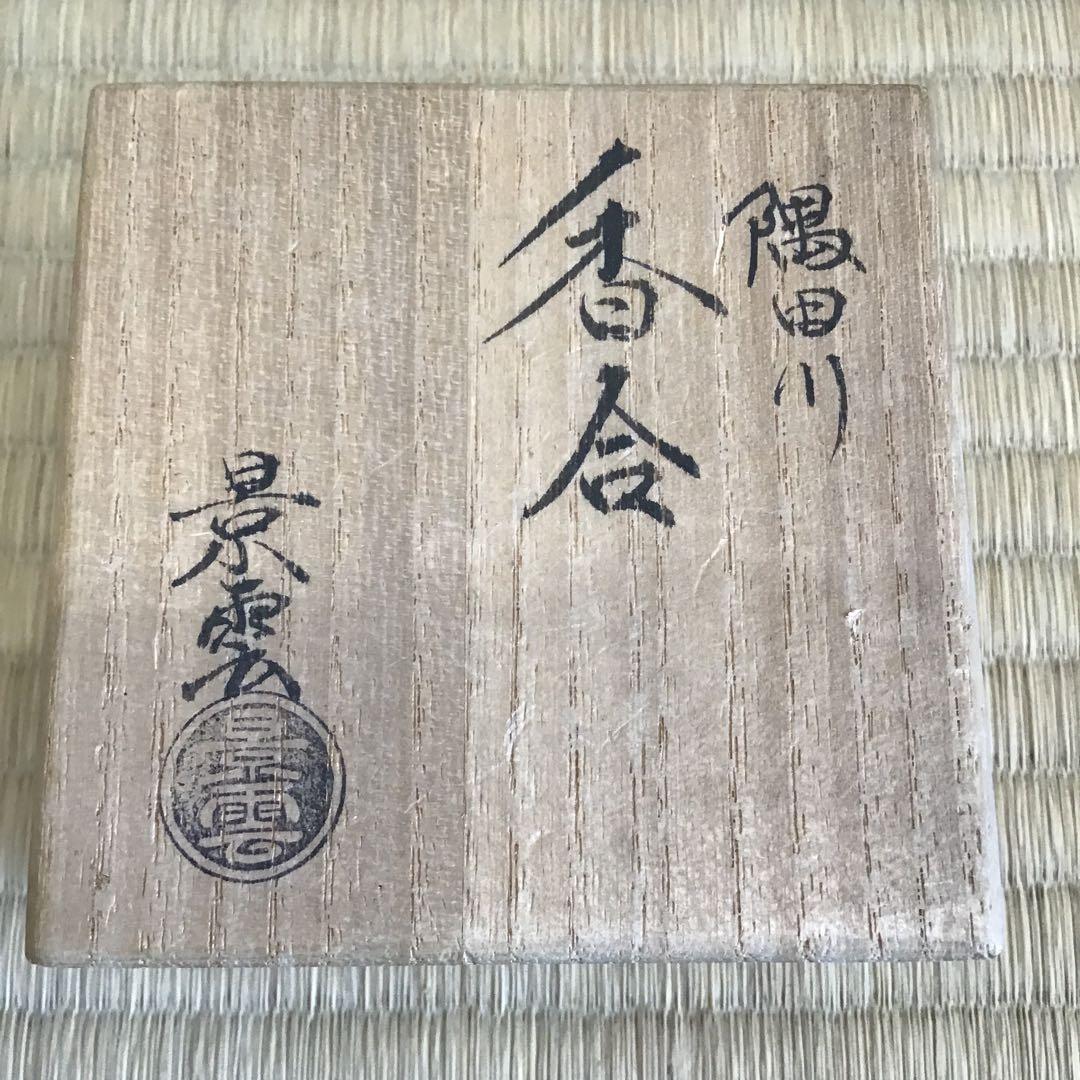 隅田川
香合
景雲
景雲